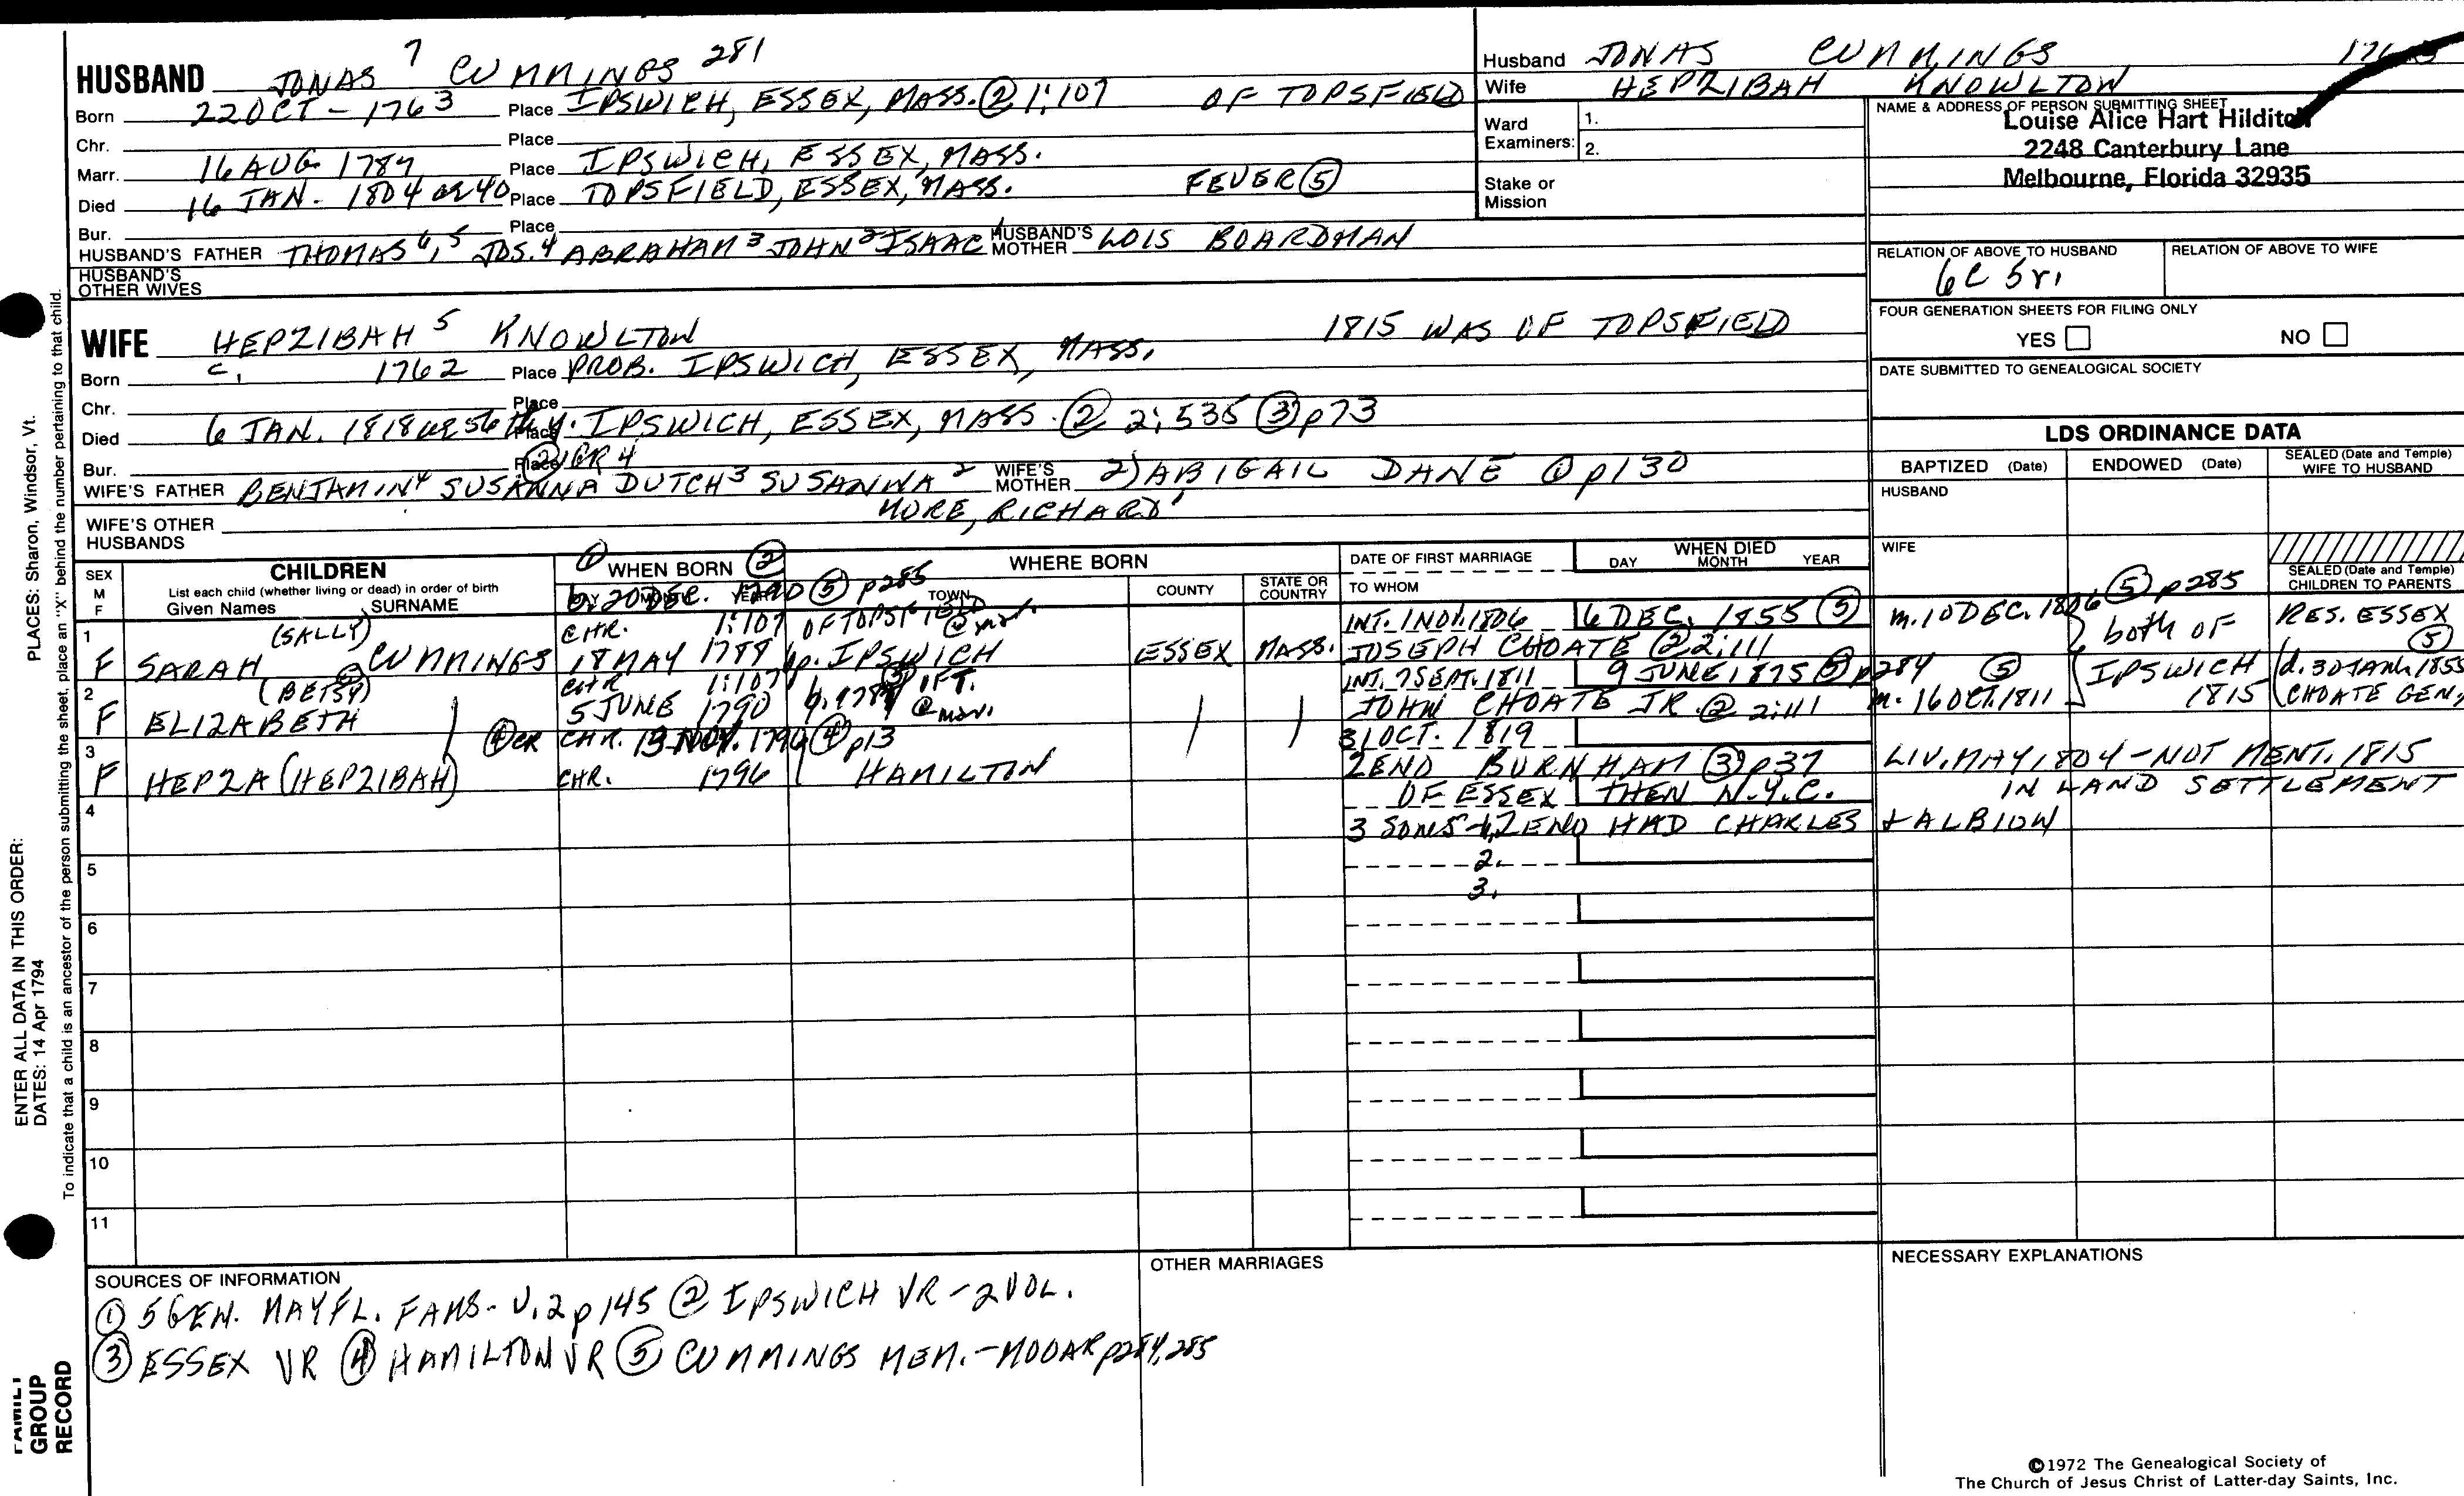 HUSBAND JONAS 7 CUMMINGS 281
Born 22 OCT - 1763 Place IPSWICH, ESSEX, MASS. ② 1:107 OF TOPSFIELD
Chr. Place
Marr. 16 AUG. 1787 Place IPSWICH, ESSEX, MASS.
Died 16 JAN. 1804 or 40 Place TOPSFIELD, ESSEX, MASS. FEVER ⑤
Bur. Place
HUSBAND'S FATHER THOMAS 6, 5 JOS. 4 ABRAHAM 3 JOHN 2 ISAAC 1 HUSBAND'S MOTHER LOIS BOARDMAN
HUSBAND'S OTHER WIVES
Husband JONAS CUMMINGS
Wife HEPZIBAH KNOWLTON
Ward Examiners: 1.
2.
Stake or Mission
NAME & ADDRESS OF PERSON SUBMITTING SHEET
Louise Alice Hart Hilditch
2248 Canterbury Lane
Melbourne, Florida 32935
RELATION OF ABOVE TO HUSBAND RELATION OF ABOVE TO WIFE
6C 5r.
FOUR GENERATION SHEETS FOR FILING ONLY
YES NO
DATE SUBMITTED TO GENEALOGICAL SOCIETY
WIFE HEPZIBAH 5 KNOWLTON 1815 WAS OF TOPSFIELD
Born c. 1762 Place PROB. IPSWICH, ESSEX, MASS.
Chr. Place
Died 6 JAN. 1818 ae 56th y. Place IPSWICH, ESSEX, MASS. ② 2:535 ③ p73
Bur. Place ② GR 4
WIFE'S FATHER BENJAMIN 4 SUSANNA DUTCH 3 SUSANNA 2 WIFE'S MOTHER 2) ABIGAIL DANE ① p130
MORE, RICHARD 1
WIFE'S OTHER HUSBANDS
LDS ORDINANCE DATA
BAPTIZED (Date) ENDOWED (Date) SEALED (Date and Temple) WIFE TO HUSBAND
HUSBAND
WIFE
SEALED (Date and Temple) CHILDREN TO PARENTS
SEX M F CHILDREN
List each child (whether living or dead) in order of birth
Given Names SURNAME
① WHEN BORN ②
DAY MONTH YEAR
WHERE BORN
TOWN COUNTY STATE OR COUNTRY
DATE OF FIRST MARRIAGE
TO WHOM
WHEN DIED
DAY MONTH YEAR
b. 20 DEC. 1790 ⑤ p285
1 (SALLY) CHR. 1:107 OF TOPSFIELD @ mar. INT. 1 NOV. 1806 6 DEC. 1855 ⑤ m. 10 DEC. 1806 ⑤ p285 both OF RES. ESSEX ⑤
F SARAH CUMMINGS 18 MAY 1788 IPSWICH ESSEX MASS. JOSEPH CHOATE ② 2:111
2 (BETSY) CHR 1:107 INT. 7 SEPT. 1811 9 JUNE 1875 ⑤ p284 ⑤ IPSWICH d. 30 JAN. 1855
F ELIZABETH 5 JUNE 1790 @ mar. JOHN CHOATE JR. ② 2:111 m. 16 OCT. 1811 1815 CHOATE GEN.
3 ④ CR CHR. 13 NOV. 1796 ④ p13 31 OCT. 1819
F HEPZA (HEPZIBAH) CHR. 1796 HAMILTON ZENO BURNHAM ③ p37 LIV. MAY, 1804 - NOT MENT. 1815
4 OF ESSEX THEN N.Y.C. IN LAND SETTLEMENT
3 SONS 1, ZENO HAD CHARLES + ALBION
5 2.
3.
6
7
8
9
10
11
SOURCES OF INFORMATION
① 5 GEN. MAYFL. FAMS - V. 2 p 145 ② IPSWICH VR - 2 VOL.
③ ESSEX VR ④ HAMILTON VR ⑤ CUMMINGS MEM. - MOOAR p284, 285
OTHER MARRIAGES
NECESSARY EXPLANATIONS
©1972 The Genealogical Society of
The Church of Jesus Christ of Latter-day Saints, Inc.
ENTER ALL DATA IN THIS ORDER:
DATES: 14 Apr 1794
PLACES: Sharon, Windsor, Vt.
To indicate that a child is an ancestor of the person submitting the sheet, place an "X" behind the number pertaining to that child.
FAMILY
GROUP
RECORD